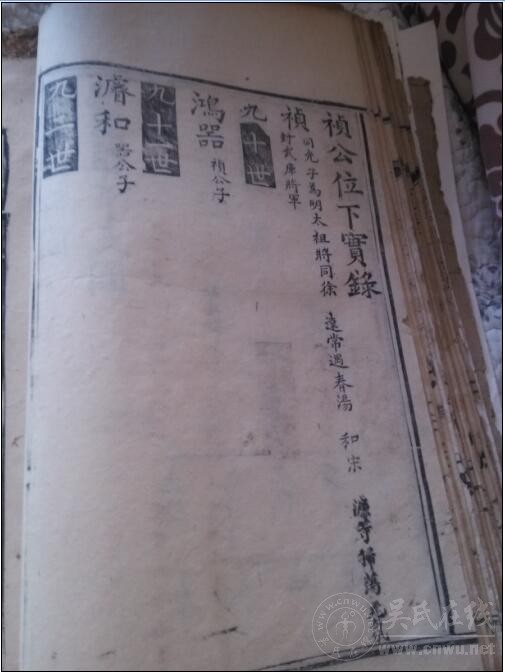 禎公位下實錄
禎 同先子為明太祖將同徐達常遇春湯 和宋 濂等掃蕩元
封武庫將軍
九十世
鴻器 禎公子
九十世
濬和 器公子
九十二世
吳氏在线
www.cnwu.net